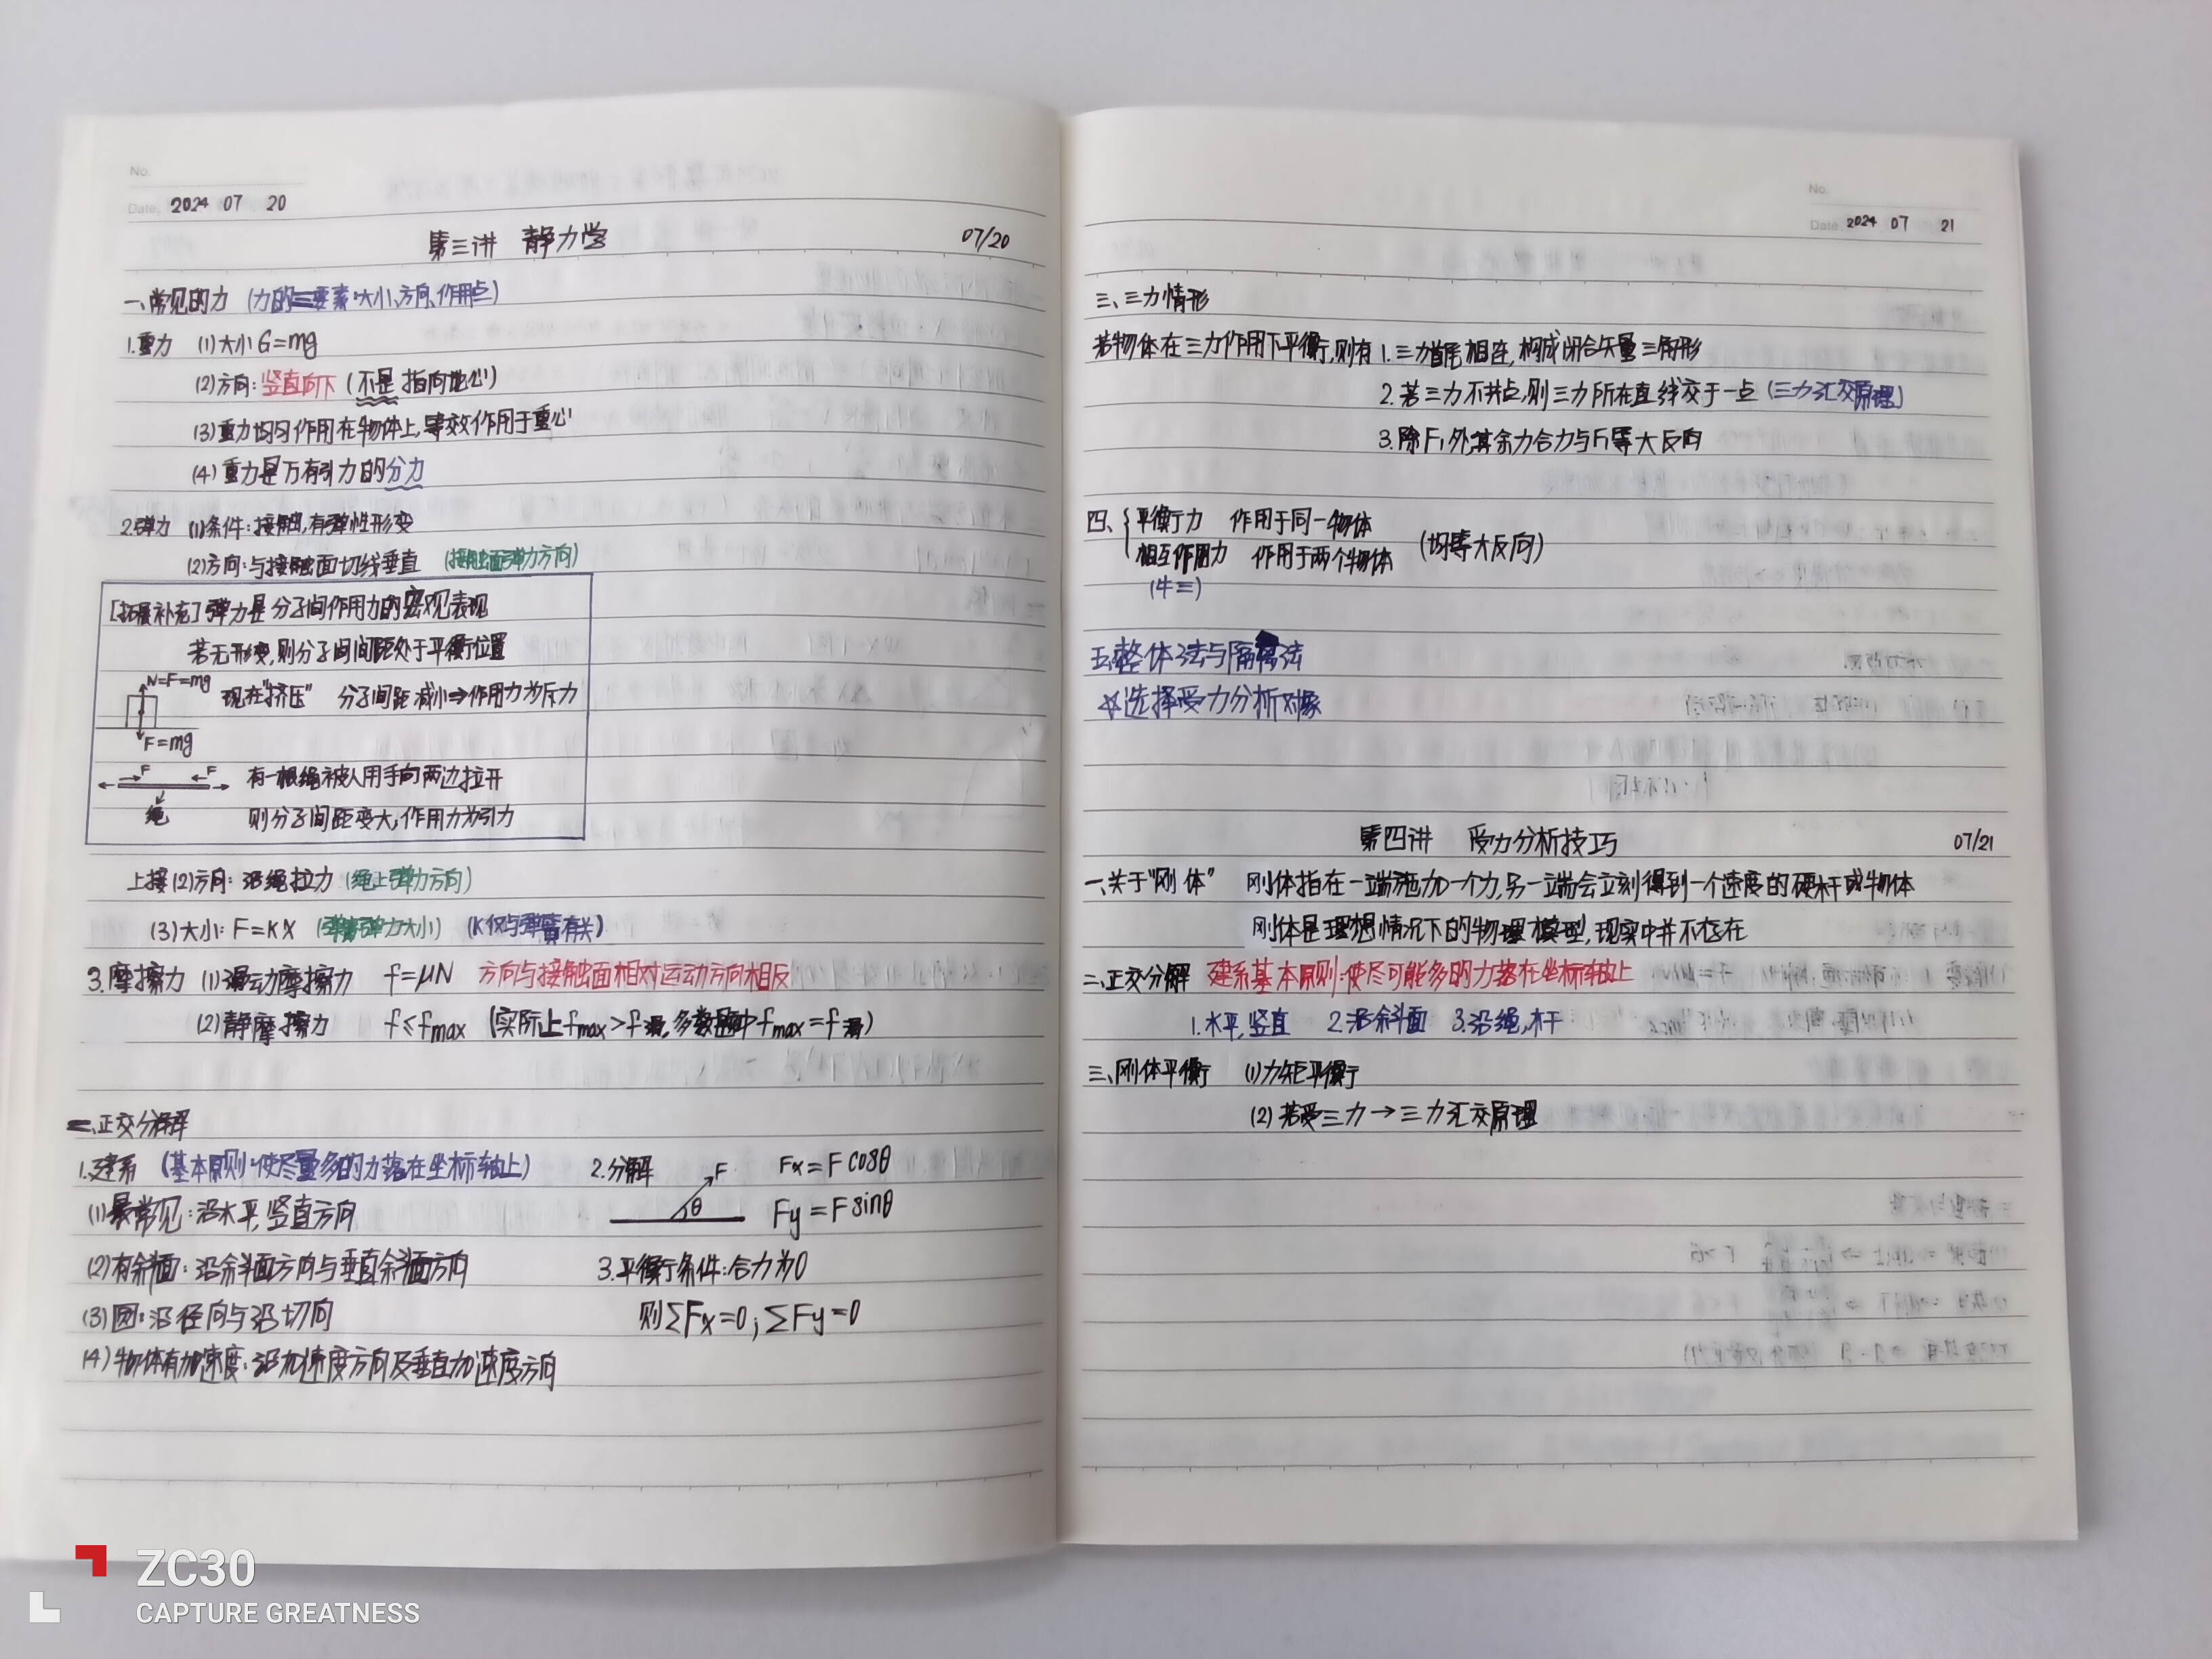 No.
Date. 2024 07 20
第三讲 静力学 07/20
一、常见的力 (力的三要素:大小、方向、作用点)
1.重力 (1)大小 G=mg
(2)方向:竖直向下(不是指向地心)
(3)重力均匀作用在物体上,等效作用于重心
(4)重力是万有引力的分力
2.弹力 (1)条件:接触,有弹性形变
(2)方向:与接触面切线垂直 (接触面弹力方向)
[拓展补充]弹力是分子间作用力的宏观表现
若无形变,则分子间间距处于平衡位置
N=F=mg
现在"挤压" 分子间距减小⇒作用力为斥力
F=mg
F F 有一根绳被人用手向两边拉开
绳 则分子间距变大,作用力为引力
上接(2)方向:沿绳拉力(绳上弹力方向)
(3)大小:F=KX (弹簧弹力大小) (K仅与弹簧有关)
3.摩擦力 (1)滑动摩擦力 f=μN 方向与接触面相对运动方向相反
(2)静摩擦力 f≤fmax (实际上fmax>f滑,多数题中fmax=f滑)
二、正交分解
1.建系 (基本原则:使尽量多的力落在坐标轴上)
(1)最常见:沿水平,竖直方向
(2)有斜面:沿斜面方向与垂直斜面方向
(3)圆:沿径向与沿切向
(4)物体有加速度:沿加速度方向及垂直加速度方向
2.分解 F θ Fx=Fcosθ
Fy=Fsinθ
3.平衡条件:合力为0
则∑Fx=0;∑Fy=0
No.
Date. 2024 07 21
三、三力情形
若物体在三力作用下平衡,则有 1.三力首尾相连,构成闭合矢量三角形
2.若三力不共点,则三力所在直线交于一点(三力汇交原理)
3.除F₁外其余力合力与F₁等大反向
四、{平衡力 作用于同一物体
相互作用力 作用于两个物体 (均等大反向)
(牛三)
五.整体法与隔离法
☆选择受力分析对象
第四讲 受力分析技巧 07/21
一、关于"刚体" 刚体指在一端施加一个力,另一端会立刻得到一个速度的硬杆或物体
刚体是理想情况下的物理模型,现实中并不存在
二、正交分解 建系基本原则:使尽可能多的力落在坐标轴上
1.水平,竖直 2.沿斜面 3.沿绳,杆
三、刚体平衡 (1)力矩平衡
(2)若受三力→三力汇交原理
ZC30
CAPTURE GREATNESS